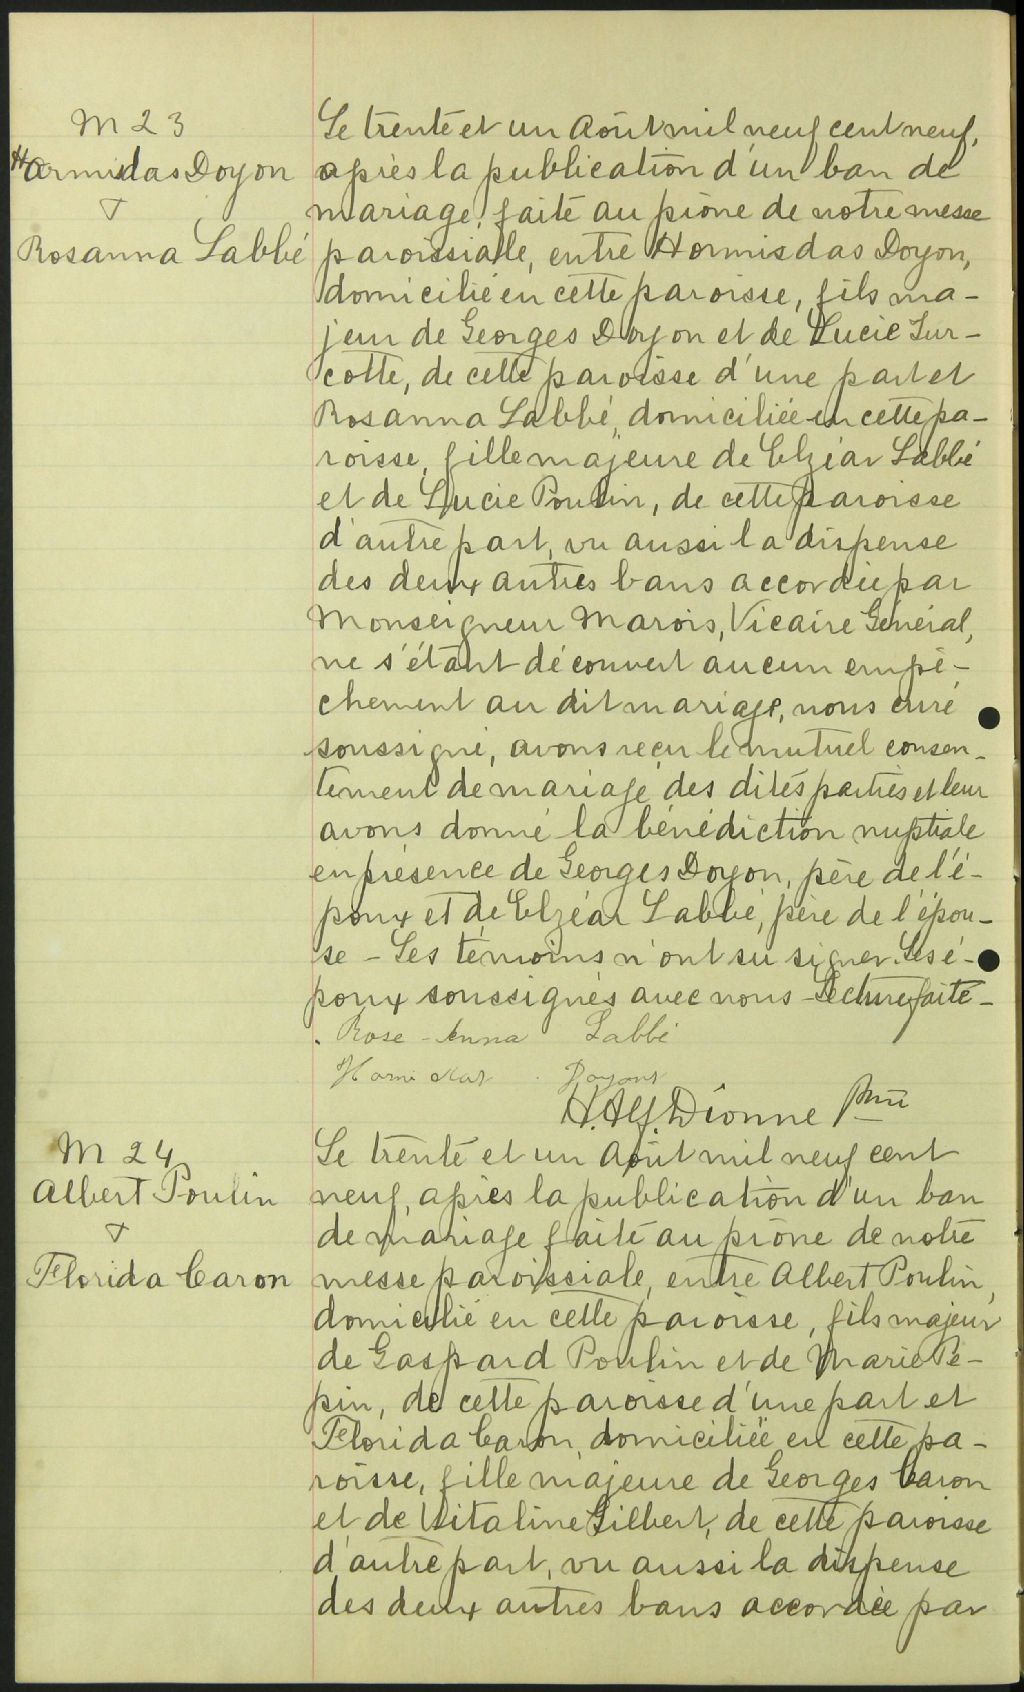 M 23
Hormidas Doyon
&
Rosanna Labbé
Le trente et un Août mil neuf cent neuf,
après la publication d'un ban de
mariage, faite au prône de notre messe
paroissiale, entre Hormisdas Doyon,
domicilié en cette paroisse, fils ma-
jeur de Georges Doyon et de Lucie Tur-
cotte, de cette paroisse d'une part et
Rosanna Labbé, domiciliée en cette pa-
roisse, fille majeure de Elzéar Labbé
et de Lucie Poulin, de cette paroisse
d'autre part, vu aussi la dispense
des deux autres bans accordée par
Monseigneur Marois, Vicaire Général,
ne s'étant découvert aucun empê-
chement au dit mariage, nous curé
soussigné, avons reçu le mutuel consen-
tement de mariage des dites parties et leur
avons donné la bénédiction nuptiale
en présence de Georges Doyon, père de l'é-
poux et de Elzéar Labbé, père de l'épou-
se - Les témoins n'ont su signer. Les é-
poux soussignés avec nous - Lecture faite -
Rose-Anna Labbé
Doyon
H. Alf. Dionne Ptre
M 24
Albert Poulin
&
Florida Caron
Le trente et un Août mil neuf cent
neuf, après la publication d'un ban
de mariage faite au prône de notre
messe paroissiale, entre Albert Poulin,
domicilié en cette paroisse, fils majeur
de Gaspard Poulin et de Marie Pé-
pin, de cette paroisse d'une part et
Florida Caron, domiciliée en cette pa-
roisse, fille majeure de Georges Caron
et de Vitaline Gilbert, de cette paroisse
d'autre part, vu aussi la dispense
des deux autres bans accordée par